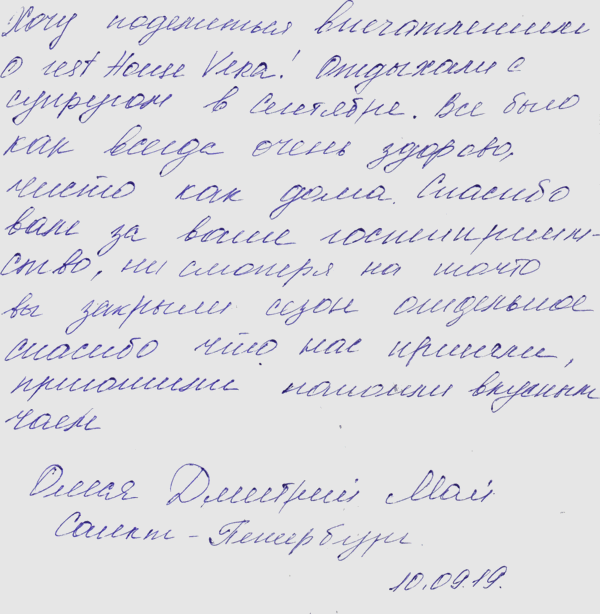 Хочу поделиться впечатлением
о rest House Vera! Отдыхали с
супругом в Сентябре. Все было
как всегда очень здорово,
чисто как дома. Спасибо
вам за ваше гостиприим-
ство, ни смотря на точто
вы закрыли сезон отдельное
спасибо что нас приняли,
пригласили напоили вкусным
чаем
Олеся Дмитрий Май
Санкт-Петербург.
10.09.19.